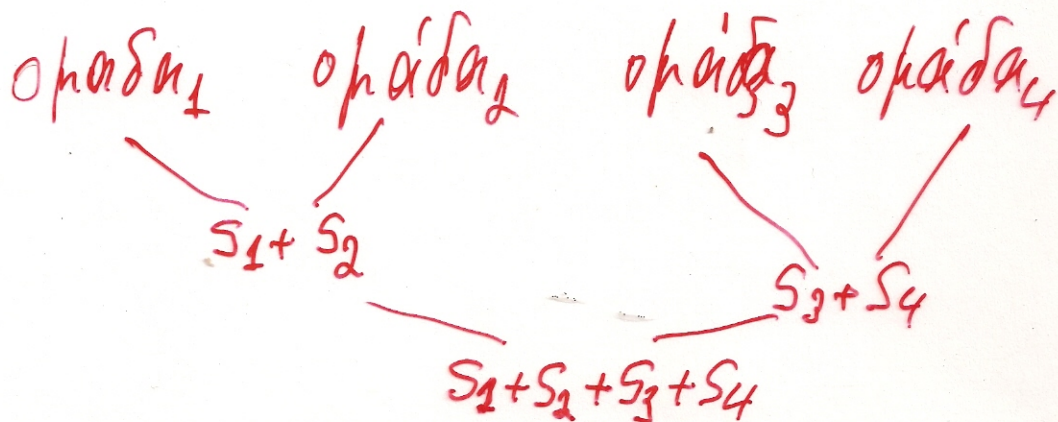 ομαδα1 ομάδα2 ομάδα3 ομάδα4
S1+ S2
S3+S4
S1+S2+S3+S4